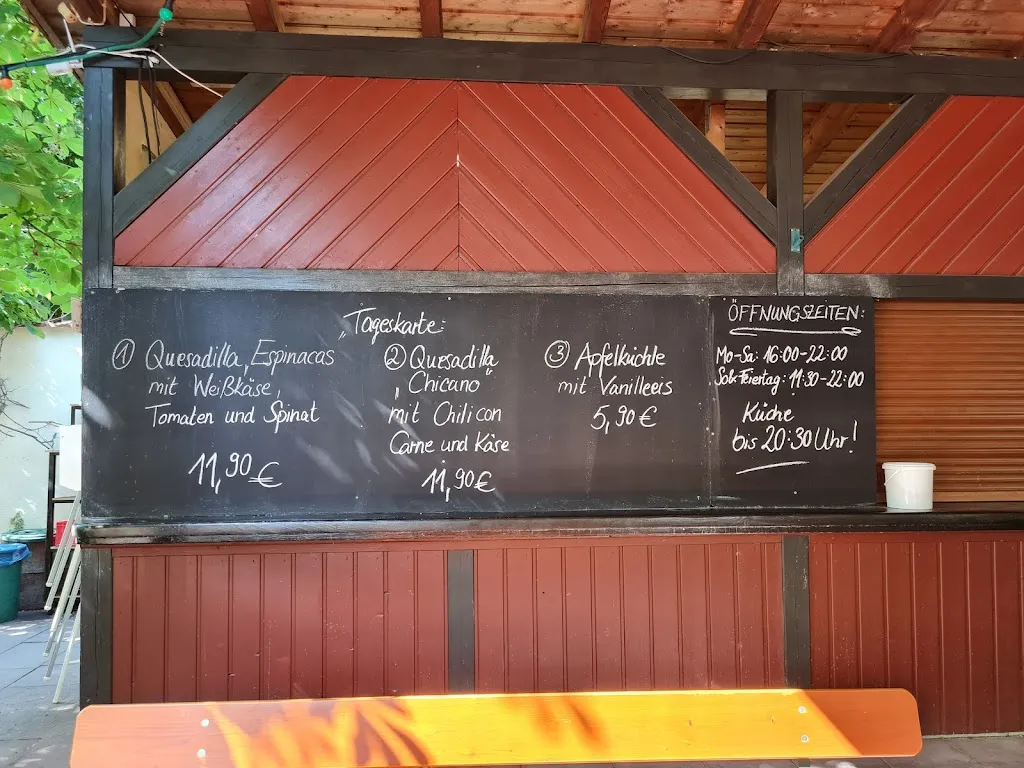 „Tageskarte:
① Quesadilla „Espinacas
mit Weißkäse,
Tomaten und Spinat
11,90 €
② Quesadilla
„Chicano“
mit Chili con
Carne und Käse
11,90 €
③ Apfelküchle
mit Vanilleeis
5,90 €
ÖFFNUNGSZEITEN:
Mo-Sa: 16:00-22:00
So & Feiertag: 11:30-22:00
Küche
bis 20:30 Uhr!